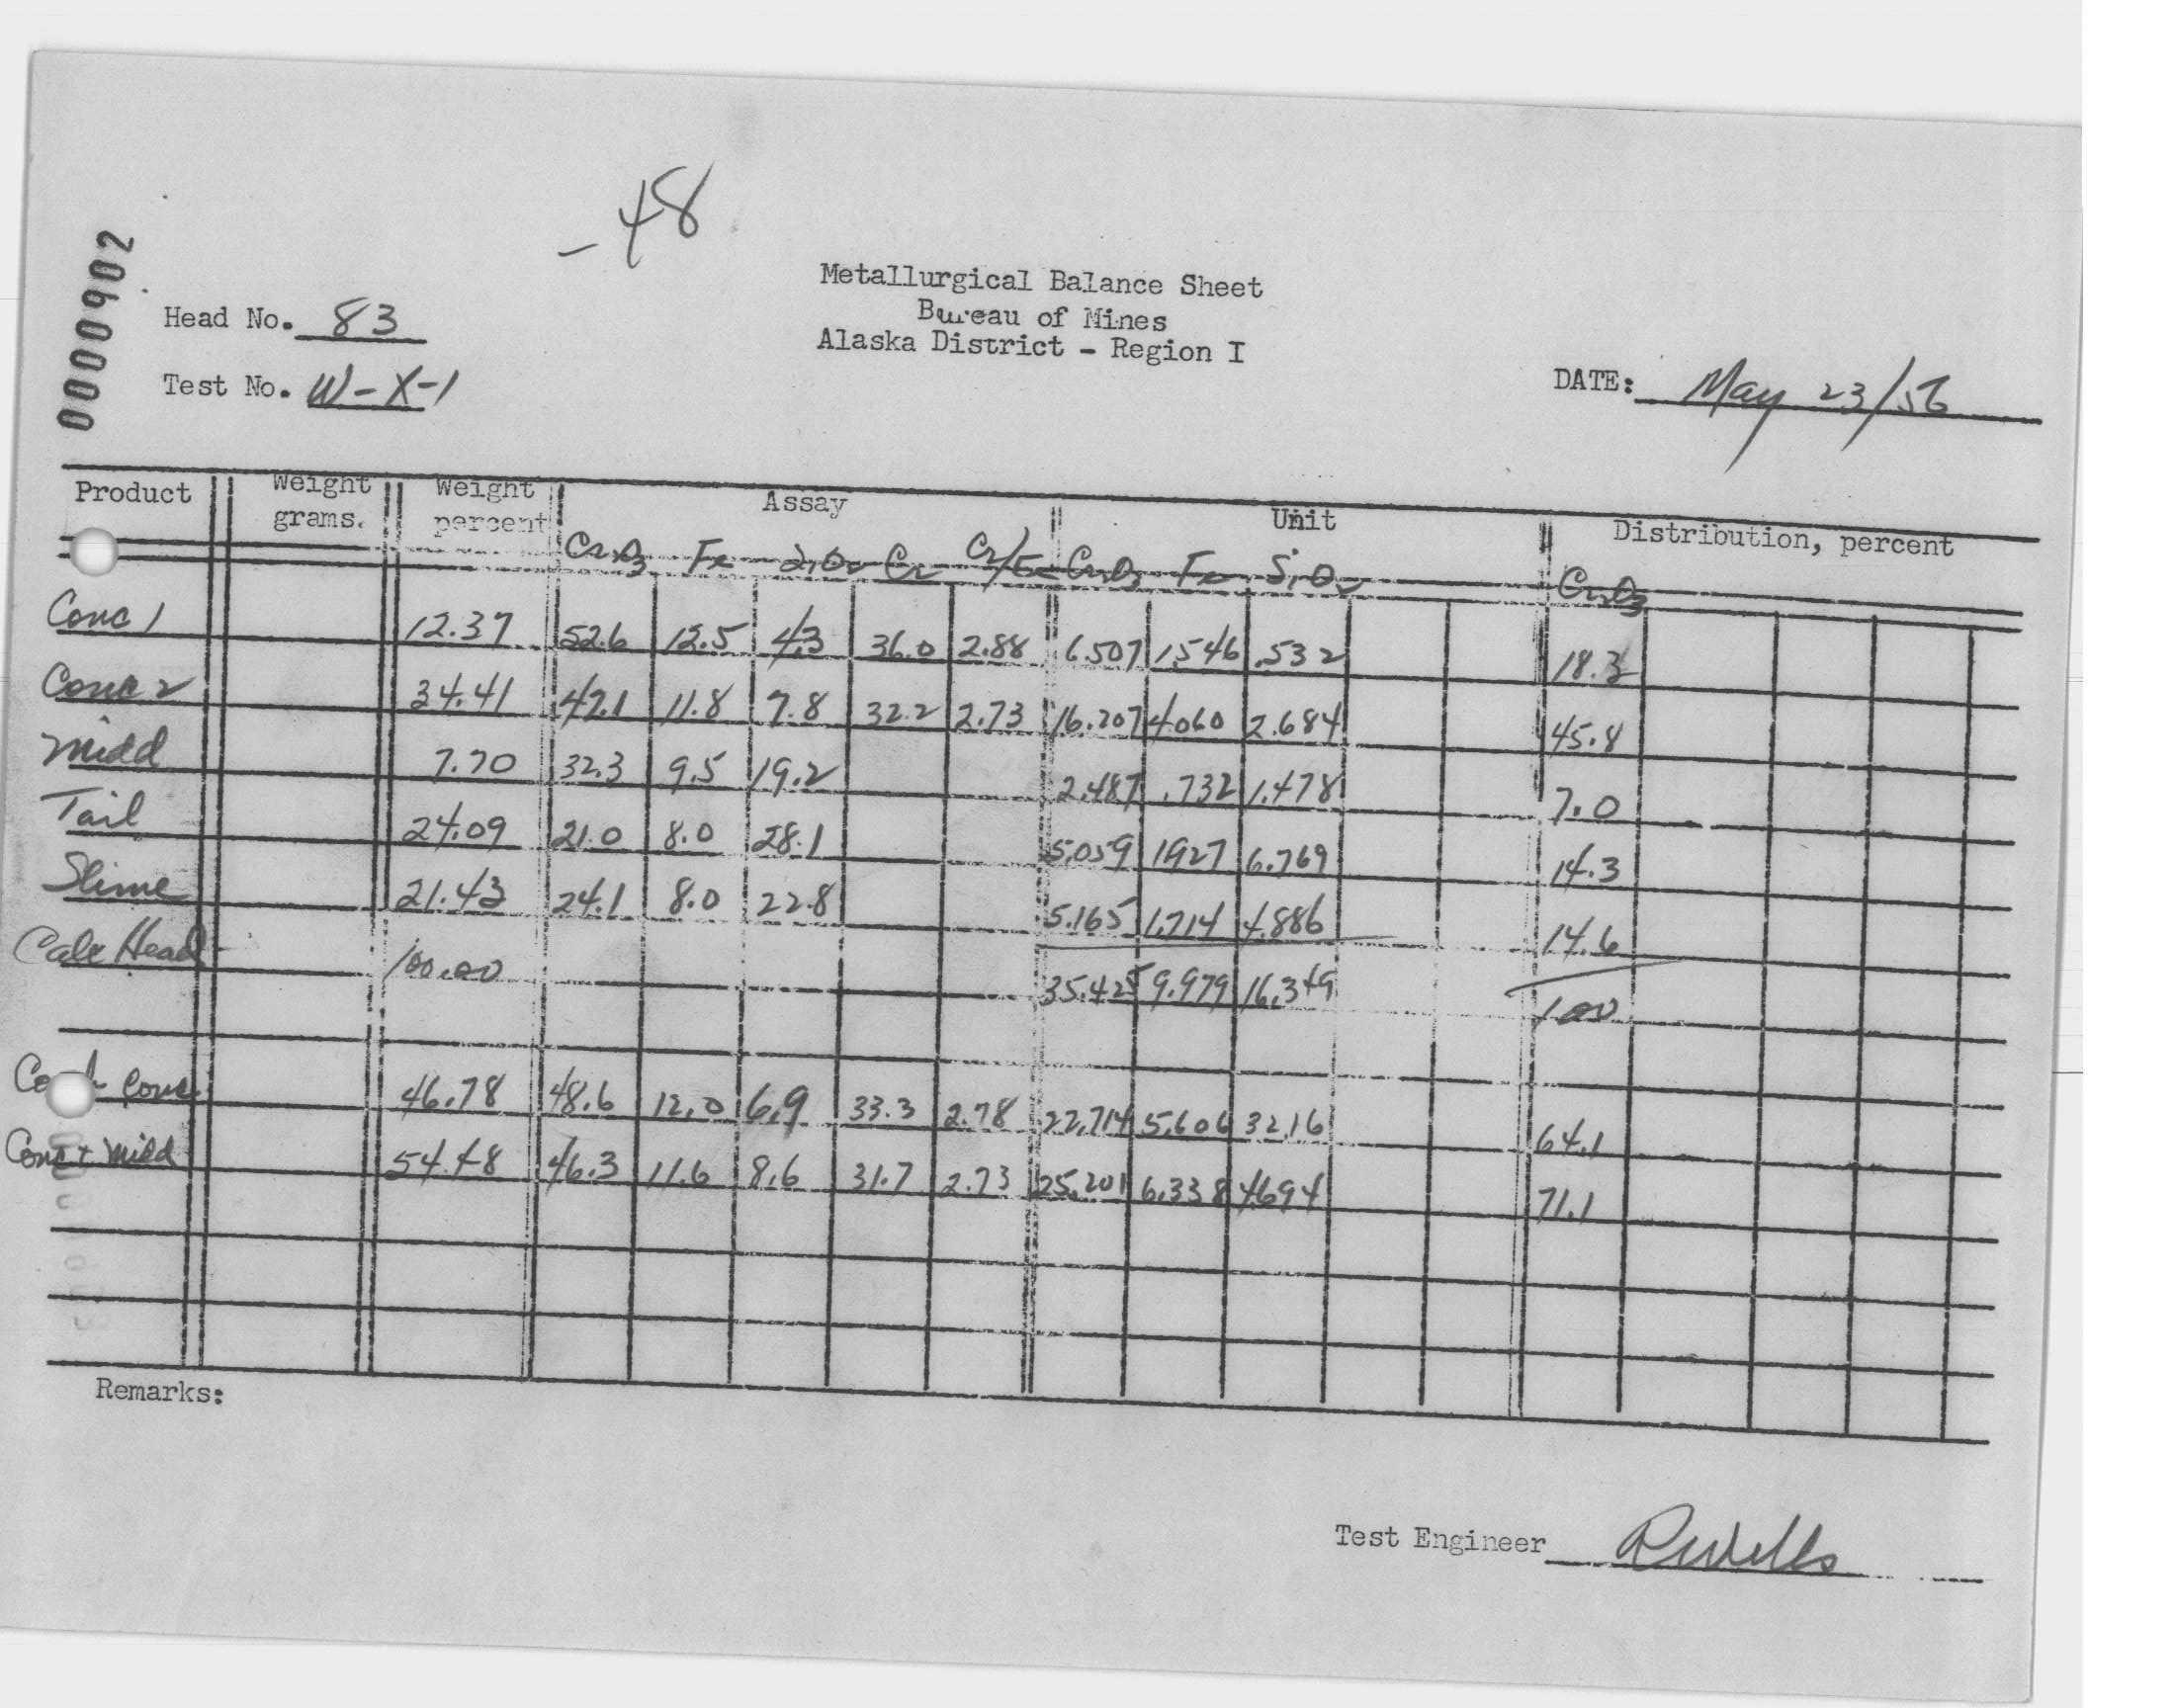 -48
0000902
Metallurgical Balance Sheet
Bureau of Mines
Alaska District - Region I
Head No. 83
Test No. W-X-1
DATE: May 23/56
Product Weight grams. Weight percent Assay Unit Distribution, percent
Cr2O3 Fe SiO2 Cr Cr/Fe Cr2O3 Fe SiO2 Cr2O3
Conc 1 12.37 52.6 12.5 4.3 36.0 2.88 6.507 1.546 .532 18.3
Conc 2 34.41 47.1 11.8 7.8 32.2 2.73 16.207 4.060 2.684 45.8
Midd 7.70 32.3 9.5 19.2 2.487 .732 1.478 7.0
Tail 24.09 21.0 8.0 28.1 5.059 1.927 6.769 14.3
Slime 21.43 24.1 8.0 22.8 5.165 1.714 4.886 14.6
Calc Head 100.00 35.425 9.979 16.349 100
Conc 46.78 48.6 12.0 6.9 33.3 2.78 22.714 5.606 3216 64.1
Conc + Midd 54.48 46.3 11.6 8.6 31.7 2.73 25.201 6.338 4694 71.1
Remarks:
Test Engineer RWells